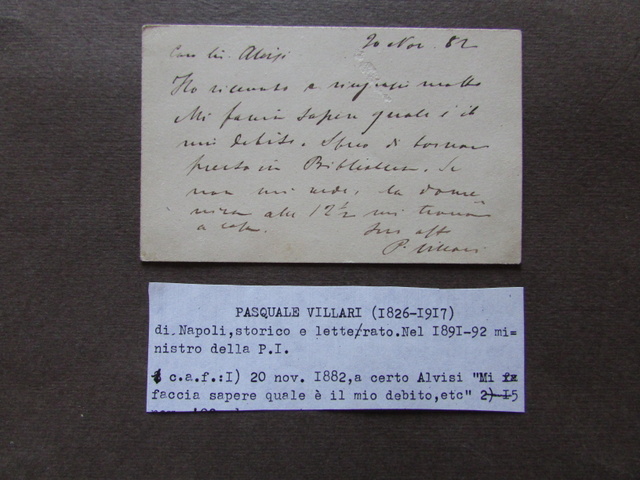 20 Nov. 82
Caro Sig. Alvisi
Ho ricevuto e ringrazio molto
Mi faccia sapere quale è il
mio debito. Spero di tornare
presto in Biblioteca. Se
non mi vede, la dome-
nica alle 12½ mi trova
a casa.
Suo aff
P. Villari
PASQUALE VILLARI (1826-1917)
di Napoli,storico e lette/rato.Nel 1891-92 mi=
nistro della P.I.
c.a.f.:I) 20 nov. 1882,a certo Alvisi "Mi fx
faccia sapere quale è il mio debito,etc" 2) 15